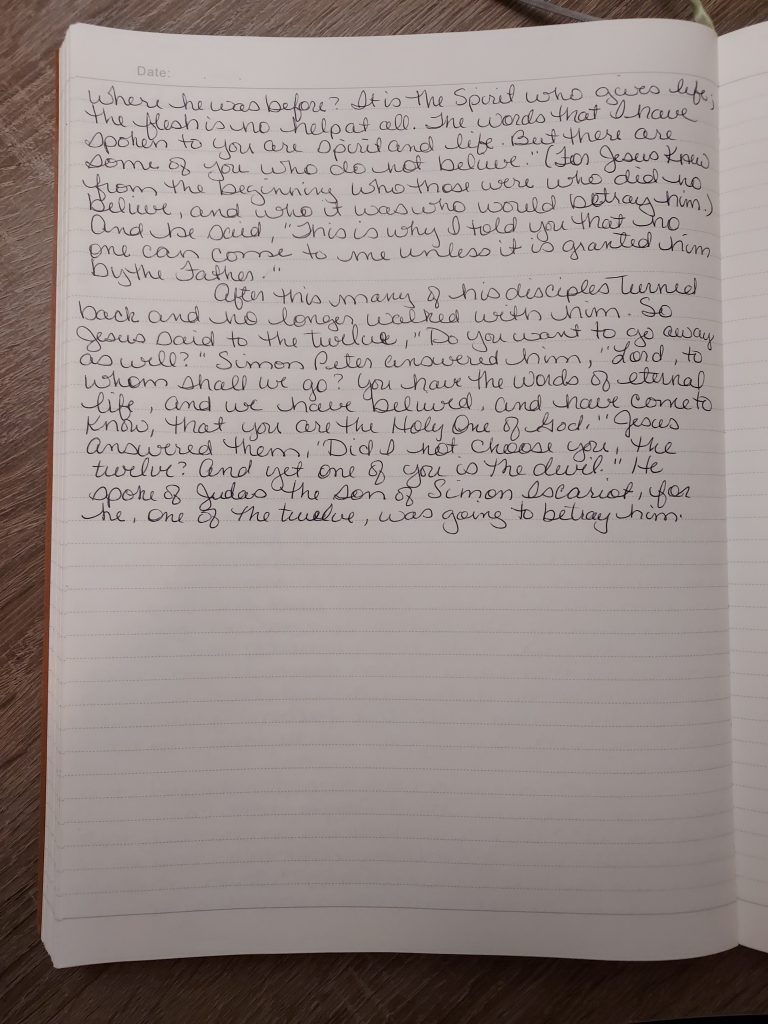 Date:
where he was before? It is the Spirit who gives life;
the flesh is no help at all. The words that I have
spoken to you are spirit and life. But there are
some of you who do not believe." (For Jesus knew
from the beginning who those were who did no
believe, and who it was who would betray him.)
And he said, "This is why I told you that no
one can come to me unless it is granted him
by the Father."
After this many of his disciples turned
back and no longer walked with him. So
Jesus said to the twelve, "Do you want to go away
as well?" Simon Peter answered him, "Lord, to
whom shall we go? You have the words of eternal
life, and we have believed, and have come to
know, that you are the Holy One of God." Jesus
answered them, "Did I not choose you, the
twelve? And yet one of you is the devil." He
spoke of Judas the son of Simon Iscariot, for
he, one of the twelve, was going to betray him.